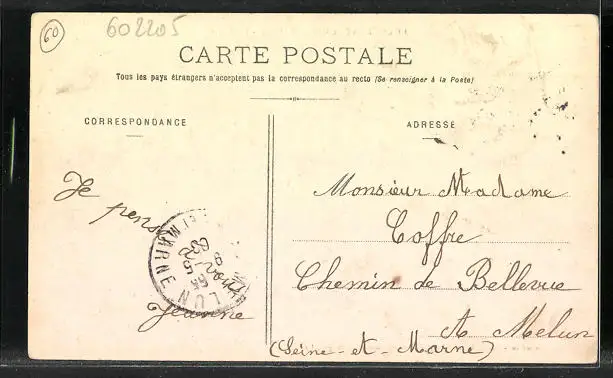 60
602205
CARTE POSTALE
Tous les pays étrangers n'acceptent pas la correspondance au recto (Se renseigner à la Poste)
CORRESPONDANCE
ADRESSE
Je pense
Jeanne
LUN
ET MARNE
Monsieur Madame
Coffre
Chemin de Bellevue
A Melun
(Seine-et-Marne)